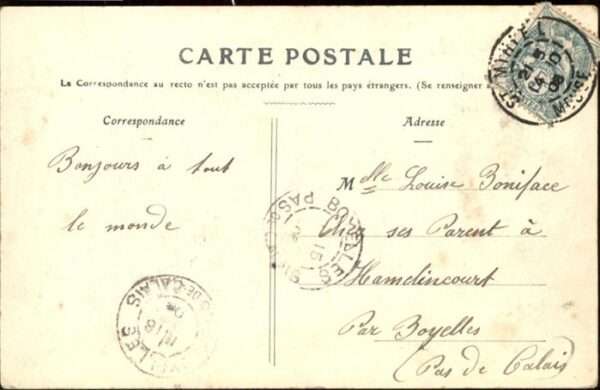 CARTE POSTALE
La Correspondance au recto n'est pas acceptée par tous les pays étrangers. (Se renseigner
Correspondance
Adresse
Bonjours à tout
le monde
Mdlle Louise Boniface
Chez ses Parent à
Hamelincourt
Par Boyelles
(Pas de Calais)
ST MIHIEL
MEUSE
PAS
DE-CALAIS